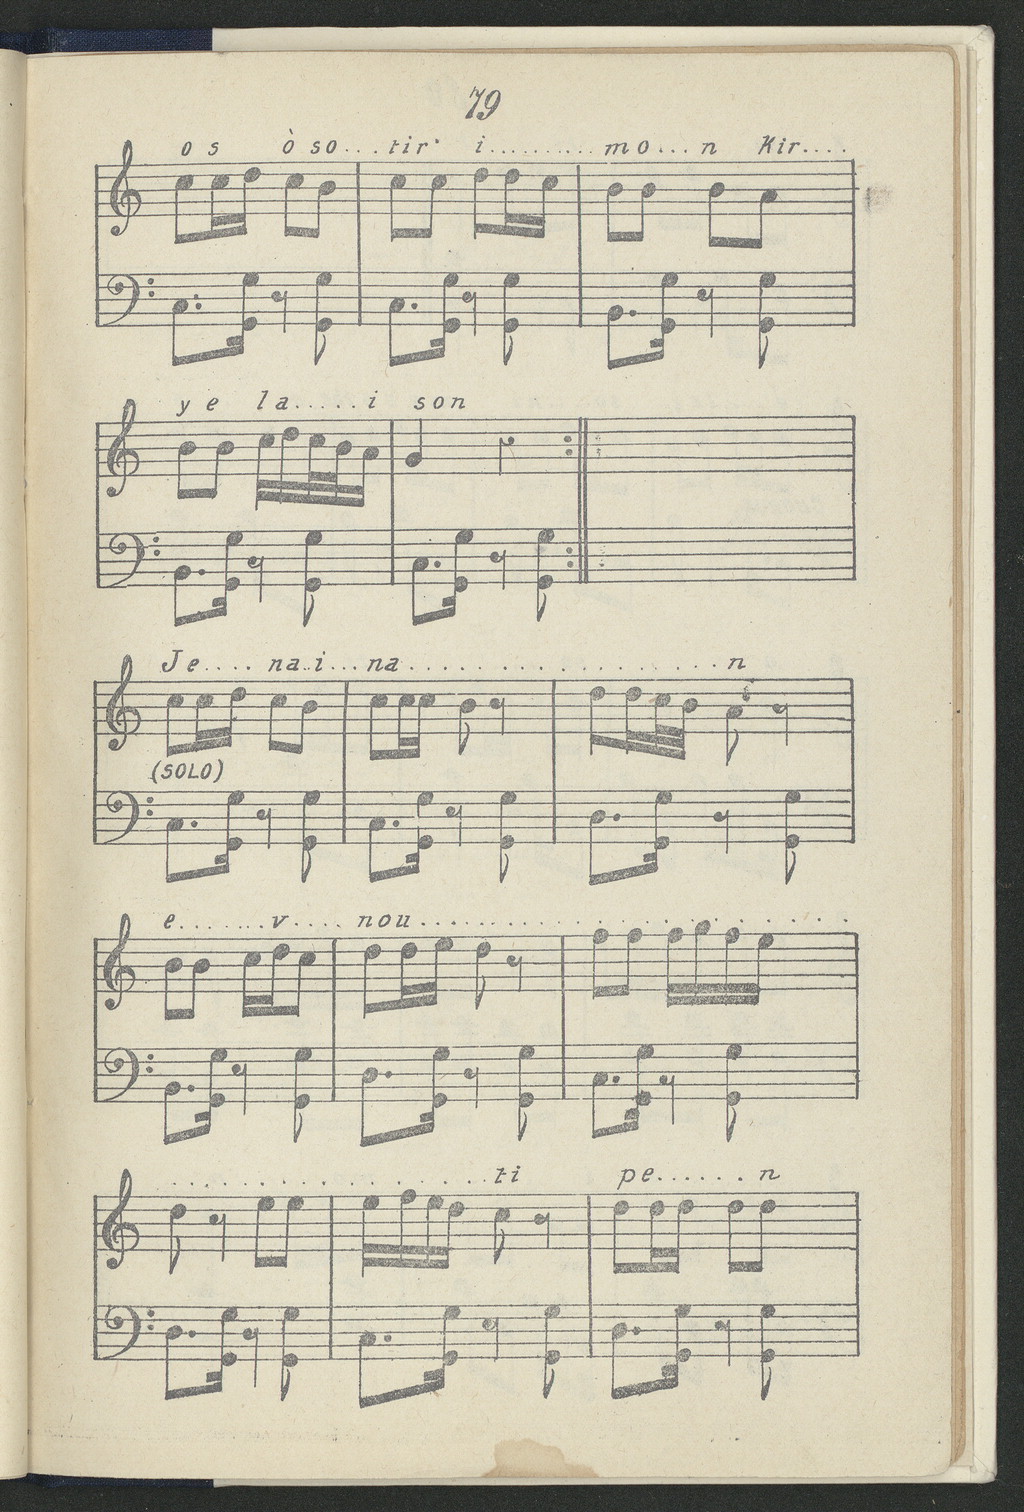 79
os ò so...tir' i..........mo...n Kir....
ye la.....i son
Je.... na..i...na......................n
(SOLO)
e.......v....nou..............................
.....................ti pe......n